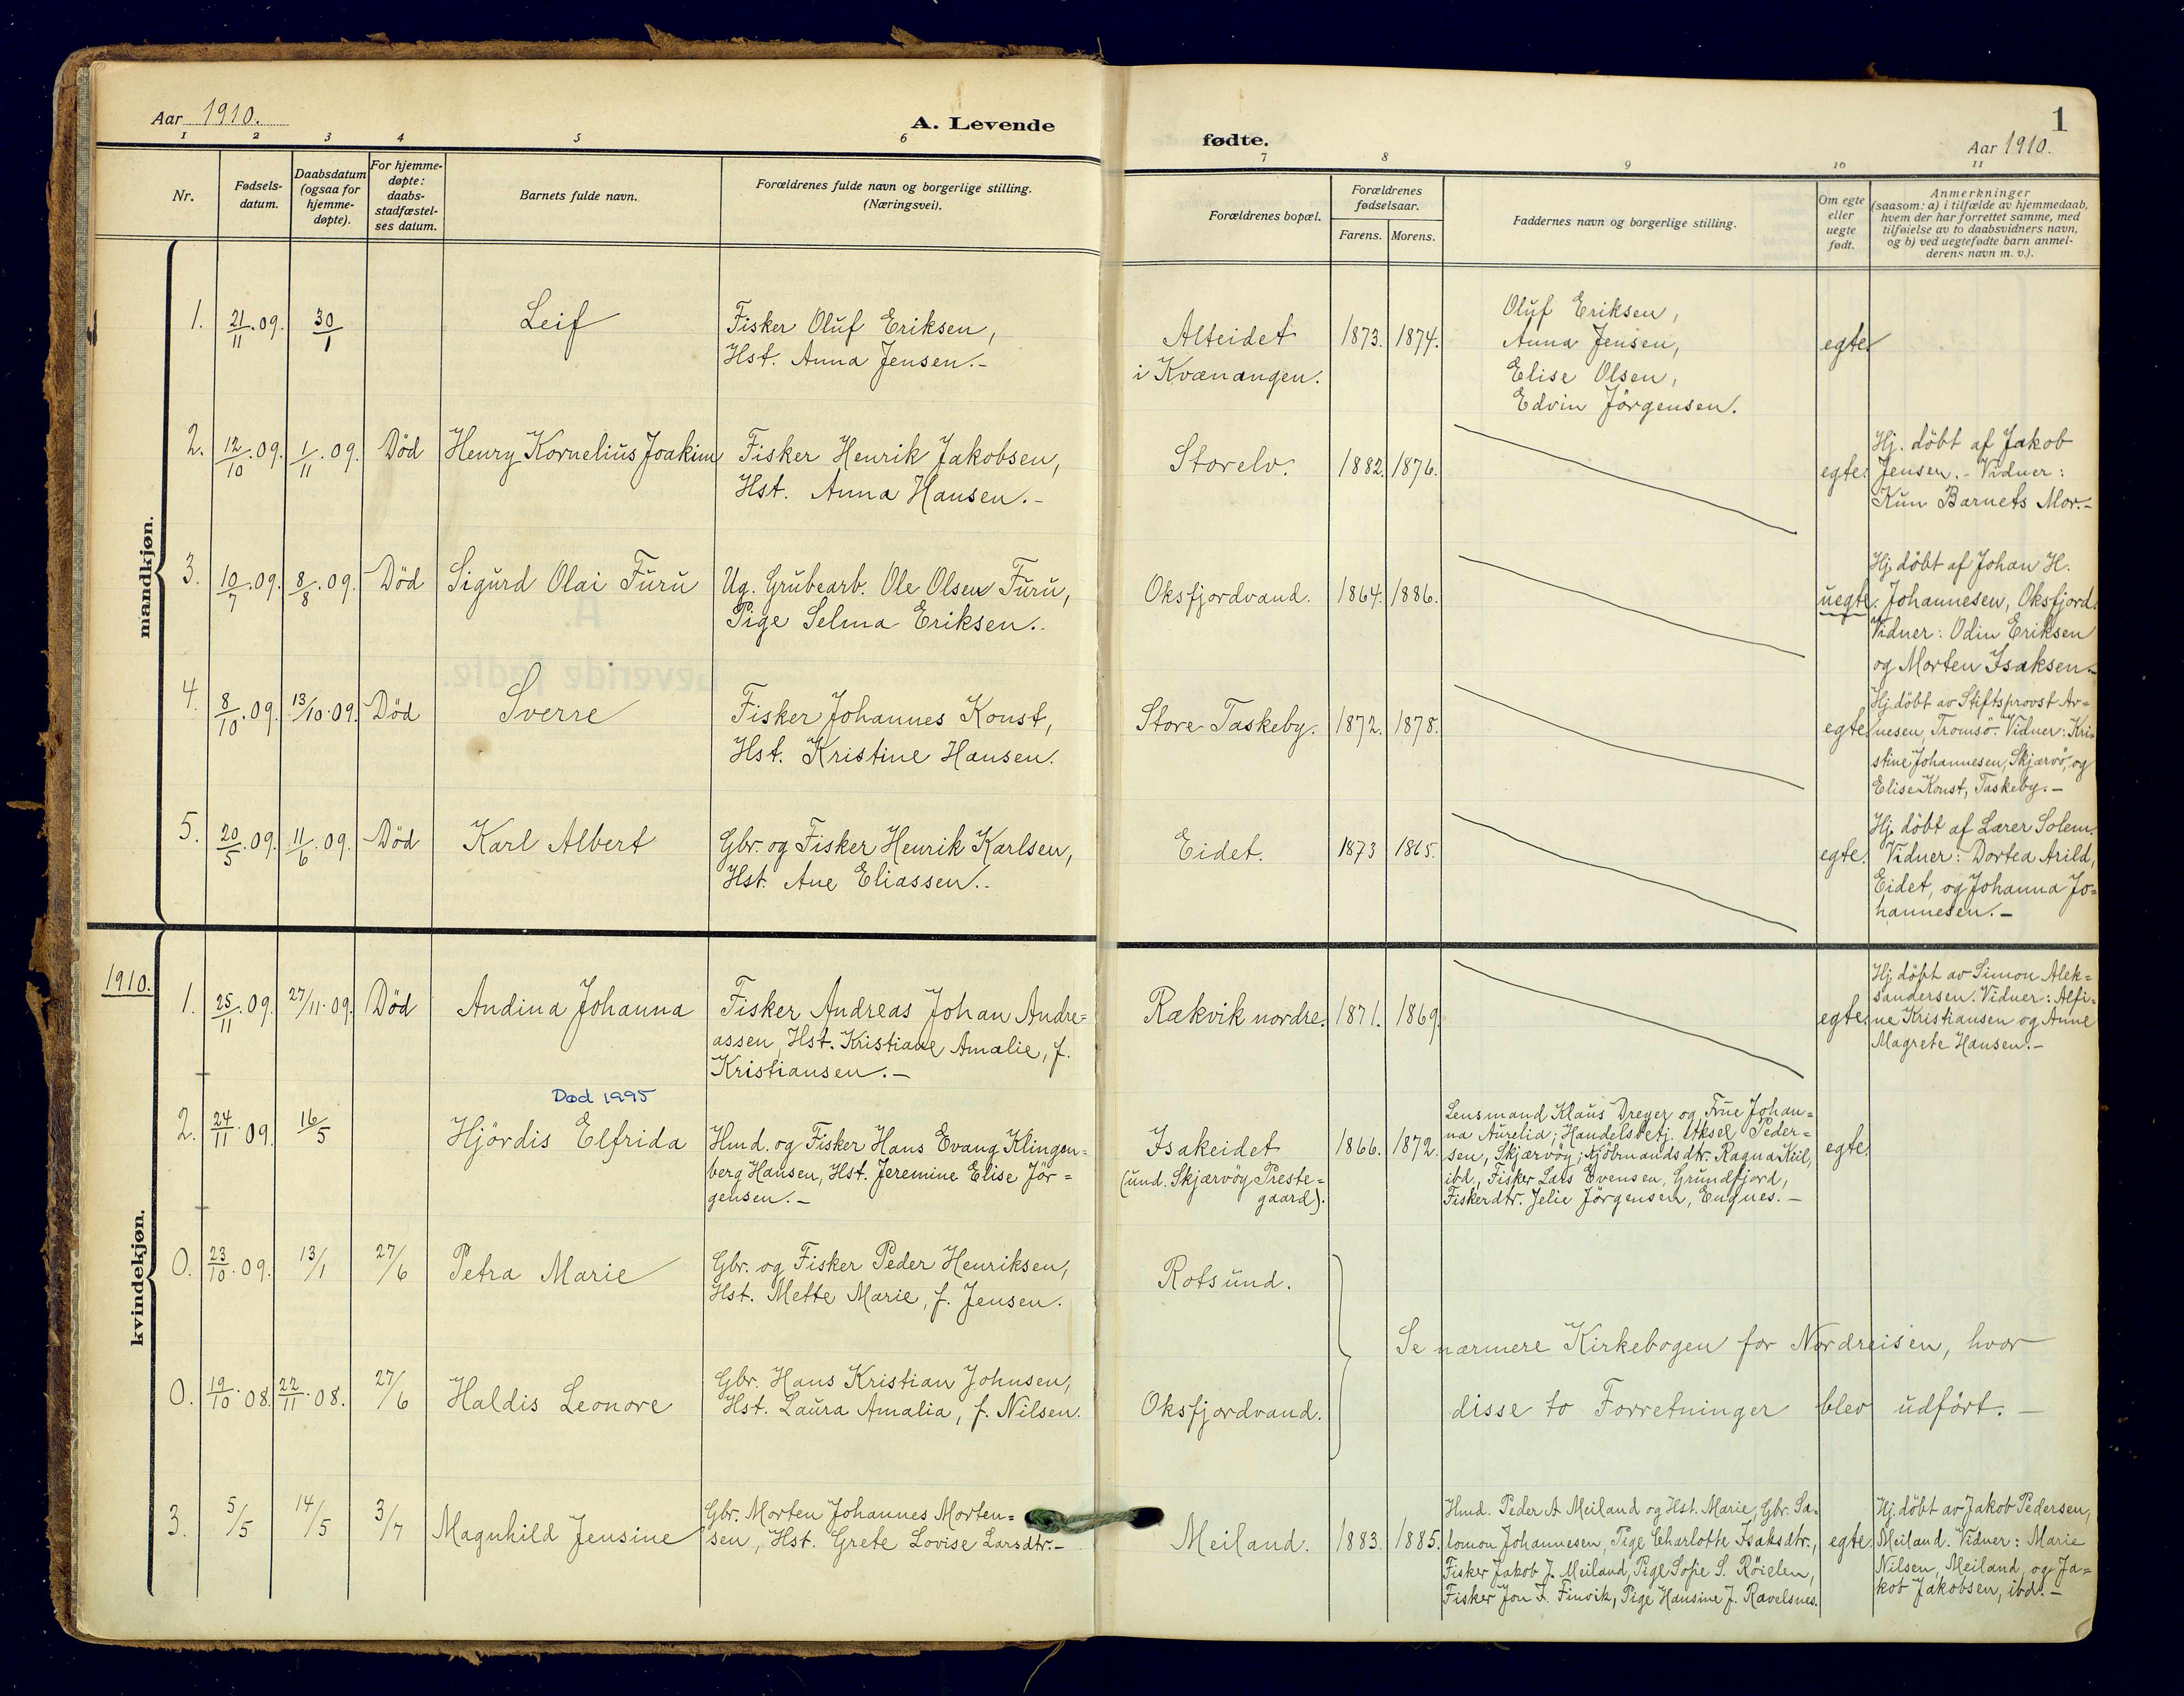 Aar 1910.
A. Levende
fødte.
1
Aar 1910.
1 2 3 4 5 6 7 8 9 10 11
Nr.
Fødsels-
datum.
Daabsdatum
(ogsaa for
hjemme-
døpte).
For hjemme-
døpte:
daabs-
stadfæstel-
ses datum.
Barnets fulde navn.
Forældrenes fulde navn og borgerlige stilling.
(Næringsvei).
Forældrenes bopæl.
Forældrenes
fødselsaar.
Farens. Morens.
Faddernes navn og borgerlige stilling.
Om egte
eller
uegte
født.
Anmerkninger
(saasom: a) i tilfælde av hjemmedaab,
hvem der har forrettet samme, med
tilføielse av to daabsvidners navn,
og b) ved uegtefødte barn anmel-
derens navn m. v.).
mandkjøn.
1. 21/11.09. 30/1 Leif
Fisker Oluf Eriksen,
Hst. Anna Jensen.-
Alteidet
i Kvænangen.
1873. 1874.
Oluf Eriksen,
Anna Jensen,
Elise Olsen,
Edvin Jörgensen.
egte.
2. 12/10.09. 1/11.09. Död Henry Kornelius Joakim
Fisker Henrik Jakobsen,
Hst. Anna Hansen.-
Storelv. 1882. 1876.
egte.
Hj. döbt af Jakob
Jensen.- Vidner:
Kun Barnets Mor.-
3. 10/7.09. 8/8.09. Död Sigurd Olai Furu
Ug. Grubearb. Ole Olsen Furu,
Pige Selma Eriksen.-
Oksfjordvand. 1864. 1886.
uegte.
Hj. döbt af Johan H.
Johannesen, Oksfjord.
Vidner: Odin Eriksen
og Morten Isaksen.-
4. 8/10.09. 13/10.09. Död Sverre
Fisker Johannes Konst,
Hst. Kristine Hansen.
Store Taskeby. 1872. 1878.
egte.
Hj. döbt av Stiftsprovst Ar=
nesen, Tromsö. Vidner: Kri=
stine Johannesen, Skjærvö, og
Elise Konst, Taskeby.-
5. 20/5.09. 11/6.09. Död Karl Albert
Gbr. og Fisker Henrik Karlsen,
Hst. Ane Eliassen.-
Eidet. 1873 1865.
egte.
Hj. döbt af Lærer Solem.
Vidner: Dortea Arild,
Eidet, og Johanna Jo=
hannesen.-
1910.
kvindekjøn.
1. 25/11.09. 27/11.09. Död Andina Johanna
Fisker Andreas Johan Andre=
assen, Hst. Kristiane Amalie, f.
Kristiansen.-
Rakvik nordre. 1871. 1869.
egte.
Hj. döbt av Simon Alek=
sandersen. Vidner: Alfi=
ne Kristiansen og Anne
Magrete Hansen.-
Død 1995
2. 24/11.09. 16/5 Hjördis Elfrida
Hmd. og Fisker Hans Evang Klingen=
berg Hansen, Hst. Jeremine Elise Jör=
gensen.-
Isakeidet
(und. Skjærvöy Preste=
gaard).
1866. 1872.
Lensmand Klaus Dreyer og Frue Johan=
na Aurelia; Handelsbetj. Aksel Peder=
sen, Skjærvöy; Kjöbmandsdtr. Ragna Kiil,
ibd., Fisker Lars Evensen, Grundfjord,
Fiskerdtr. Jelie Jörgensen, Engnes.-
egte.
0. 23/10.09. 13/1 27/6 Petra Marie
Gbr. og Fisker Peder Henriksen,
Hst. Mette Marie, f. Jensen.
Rotsund.
Se nærmere Kirkebogen for Nordreisen, hvor
0. 19/10.08. 22/11.08. 27/6 Haldis Leonore
Gbr. Hans Kristian Johnsen,
Hst. Laura Amalia, f. Nilsen.
Oksfjordvand.
disse to Forretninger blev udfört.-
3. 5/5 14/5 3/7 Magnhild Jensine
Gbr. Morten Johannes Morten=
sen, Hst. Grete Lovise Larsdtr.-
Meiland. 1883. 1885.
Hmd. Peder A Meiland og Hst. Marie, Gbr. Sa=
lomon Johannesen, Pige Charlotte Isaksdtr.,
Fisker Jakob J. Meiland, Pige Sofie S. Röielen,
Fisker Jon F. Finvik, Pige Hansine J. Ravelsnes.
egte.
Hj. döbt av Jakob Pedersen,
Meiland. Vidner: Marie
Nilsen, Meiland, og Ja=
kob Jakobsen, ibd.-